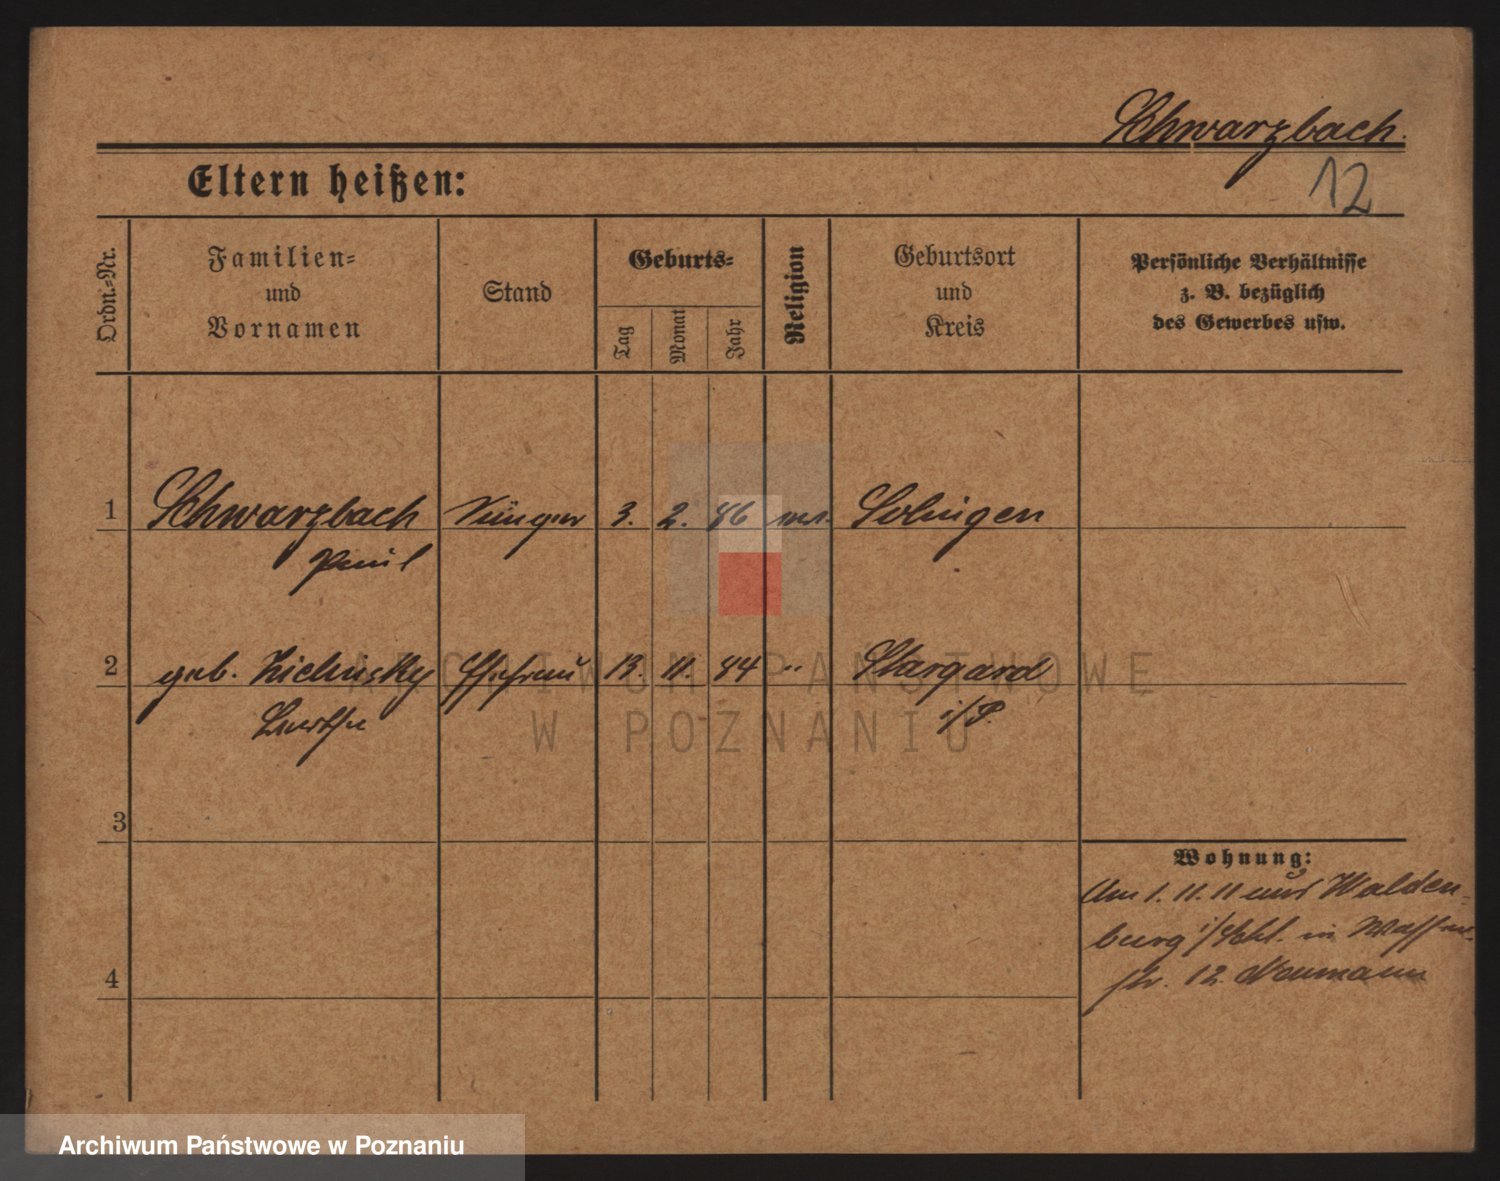 Schwarzbach.
12
Eltern heißen:
Ordn.-Nr.
Familien-
und
Vornamen
Stand
Geburts-
Tag
Monat
Jahr
Religion
Geburtsort
und
Kreis
Persönliche Verhältnisse
z. B. bezüglich
des Gewerbes usw.
1 Schwarzbach 3. 2. 86 Solingen
Paul
2 geb. Zielinsky Ehefrau 13. 11. 84 " Stargard
i/P.
3
Wohnung:
Am 1. 11. 11 aus Walden-
burg i/Schl. in
4
str. 12. Neumann
ARCHIWUM PAŃSTWOWE
W POZNANIU
Archiwum Państwowe w Poznaniu